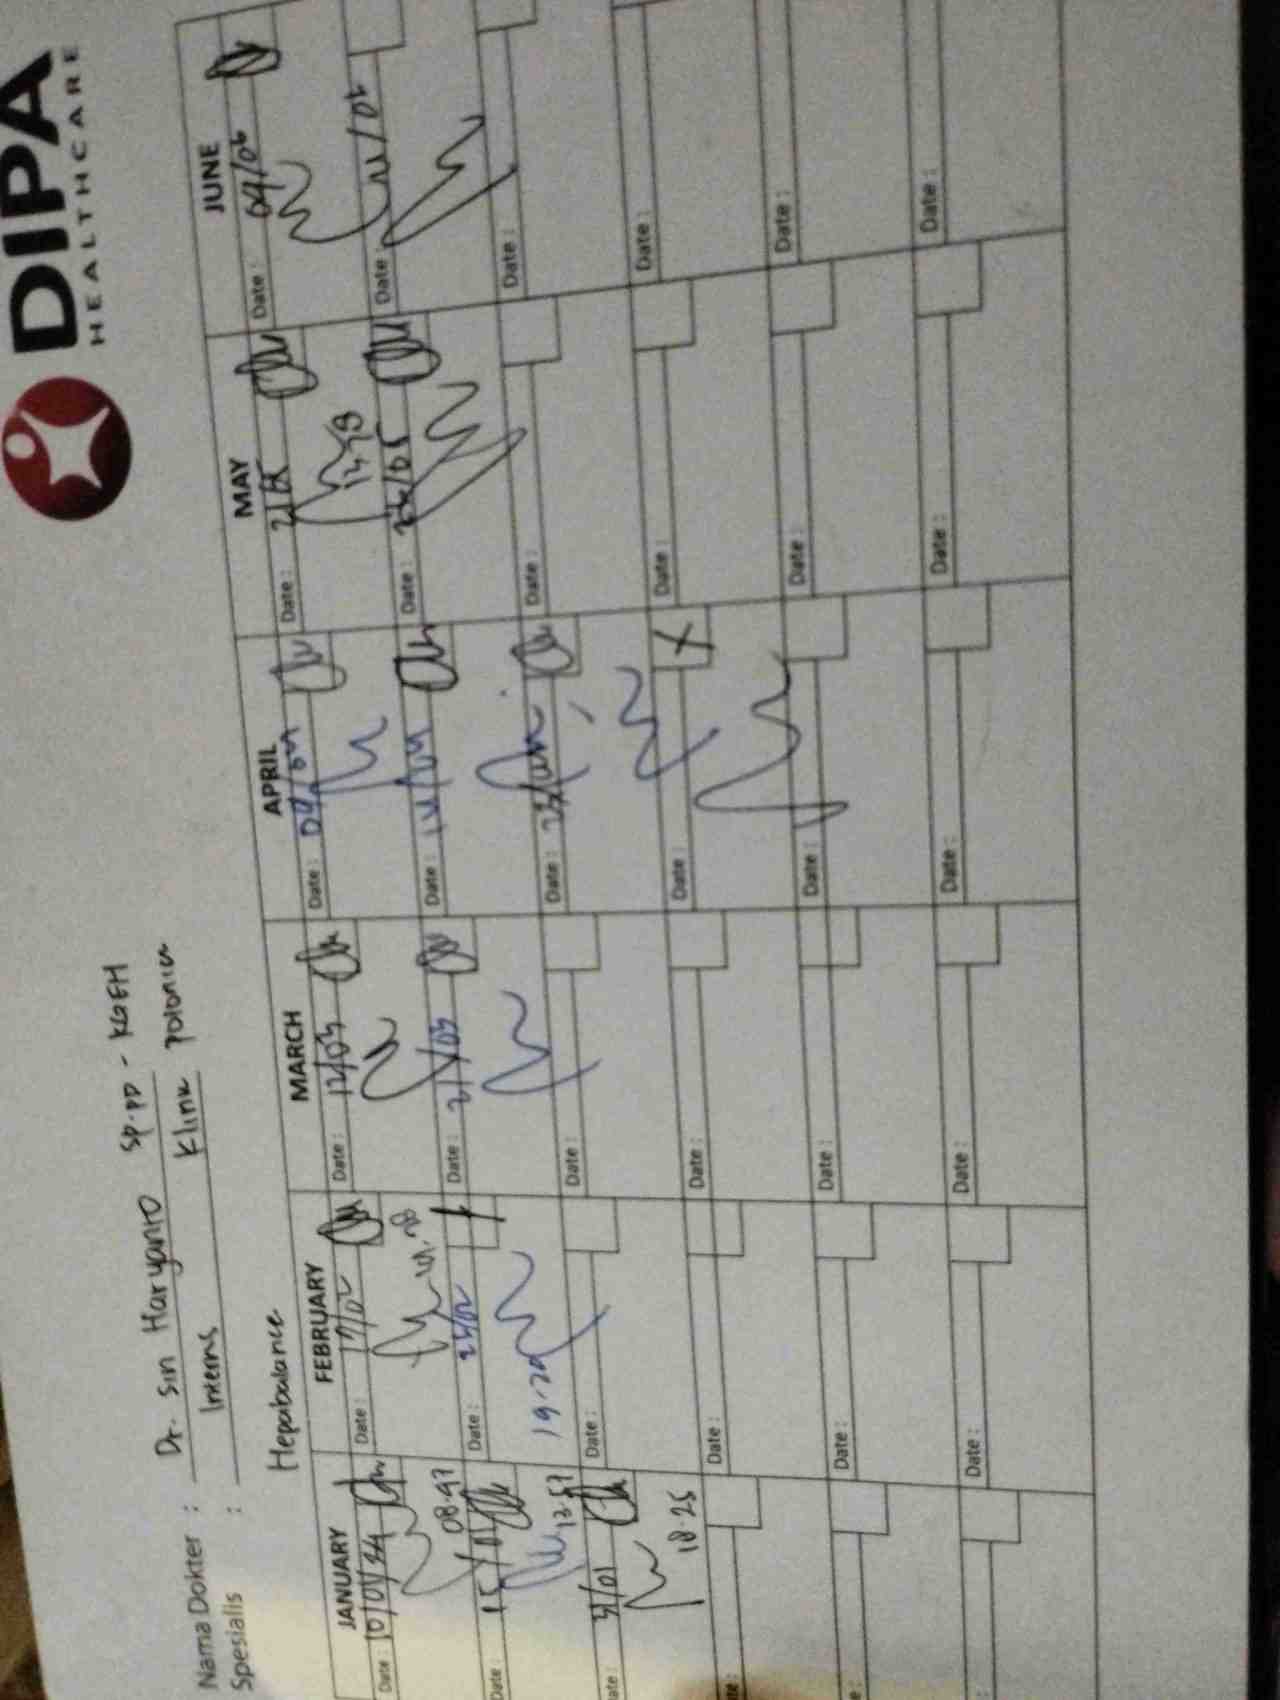 DIPA
HEALTHCARE
Nama Dokter : Dr. Sin Haryanto Sp.PD - KGEH
Spesialis : Interns Klinik polonia
Hepabalance
JANUARY FEBRUARY MARCH APRIL MAY JUNE
Date : 10/01/24 Date : 17/02 Date : 12/03 Date : 04/04 Date : Date : 04/06
08.47 14.43
Date : 15/01 Date : 24/02 Date : 21/03 Date : 14/04 Date : Date : 11/06
12.57 19.20
Date : 31/01 Date : Date : Date : Date : Date :
18.25
Date : Date : Date : Date : Date : Date :
Date : Date : Date : Date : Date : Date :
Date : Date : Date : Date : Date : Date :